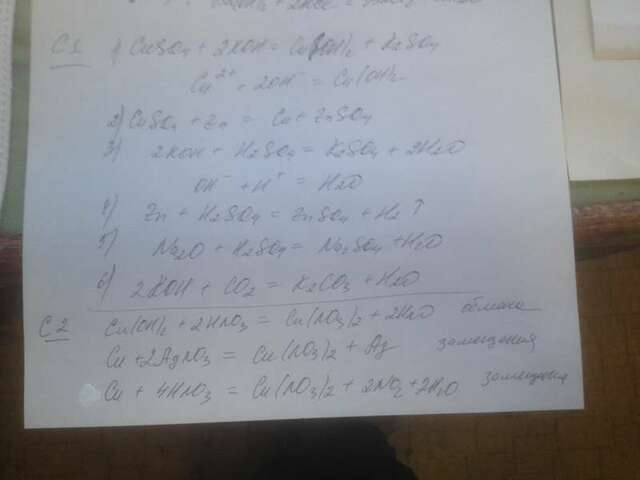 C1
1) CuSO4 + 2KOH = Cu(OH)2 + K2SO4
Cu2+ + 2OH- = Cu(OH)2
2) CuSO4 + Zn = Cu + ZnSO4
3) 2KOH + H2SO4 = K2SO4 + 2H2O
OH- + H+ = H2O
4) Zn + H2SO4 = ZnSO4 + H2↑
5) Na2O + H2SO4 = Na2SO4 + H2O
6) 2KOH + CO2 = K2CO3 + H2O
C2
Cu(OH)2 + 2HNO3 = Cu(NO3)2 + 2H2O
Cu + 2AgNO3 = Cu(NO3)2 + Ag замещения
Cu + 4HNO3 = Cu(NO3)2 + 2NO2 + 2H2O замещения